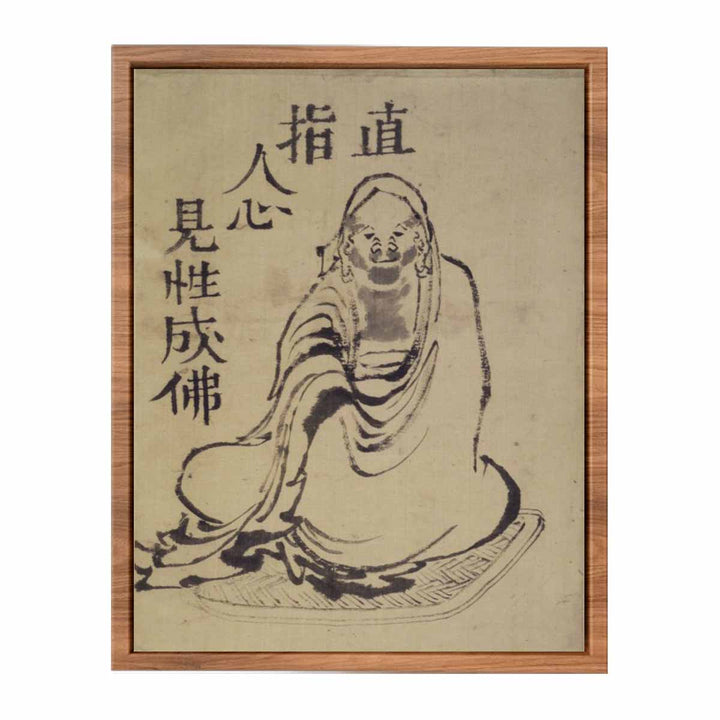 直指
人心
見性成佛